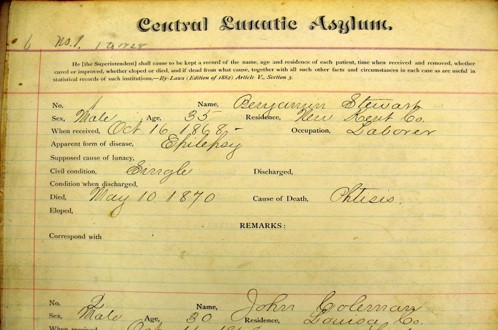 Central Lunatic Asylum.
6 No. 1
He [the Superintendent] shall cause to be kept a record of the name, age and residence of each patient, time when received and removed, whether
cured or improved, whether eloped or died, and if dead from what cause, together with all such other facts and circumstances in each case as are useful in
statistical records of such institutions.—By-Laws (Edition of 1882) Article V., Section 3.
No. 1 Name, Benjamin Stewart
Sex, Male Age, 35 Residence, New Kent Co.
When received, Oct 16, 1868,- Occupation, Laborer
Apparent form of disease, Epilepsy
Supposed cause of lunacy,
Civil condition, Single Discharged,
Condition when discharged,
Died, May 10 1870 Cause of Death, Phtisis.
Eloped,
REMARKS:
Correspond with
No. 2 Name, John Coleman
Sex, Male Age, 30 Residence, Louisa Co.
When received Oct